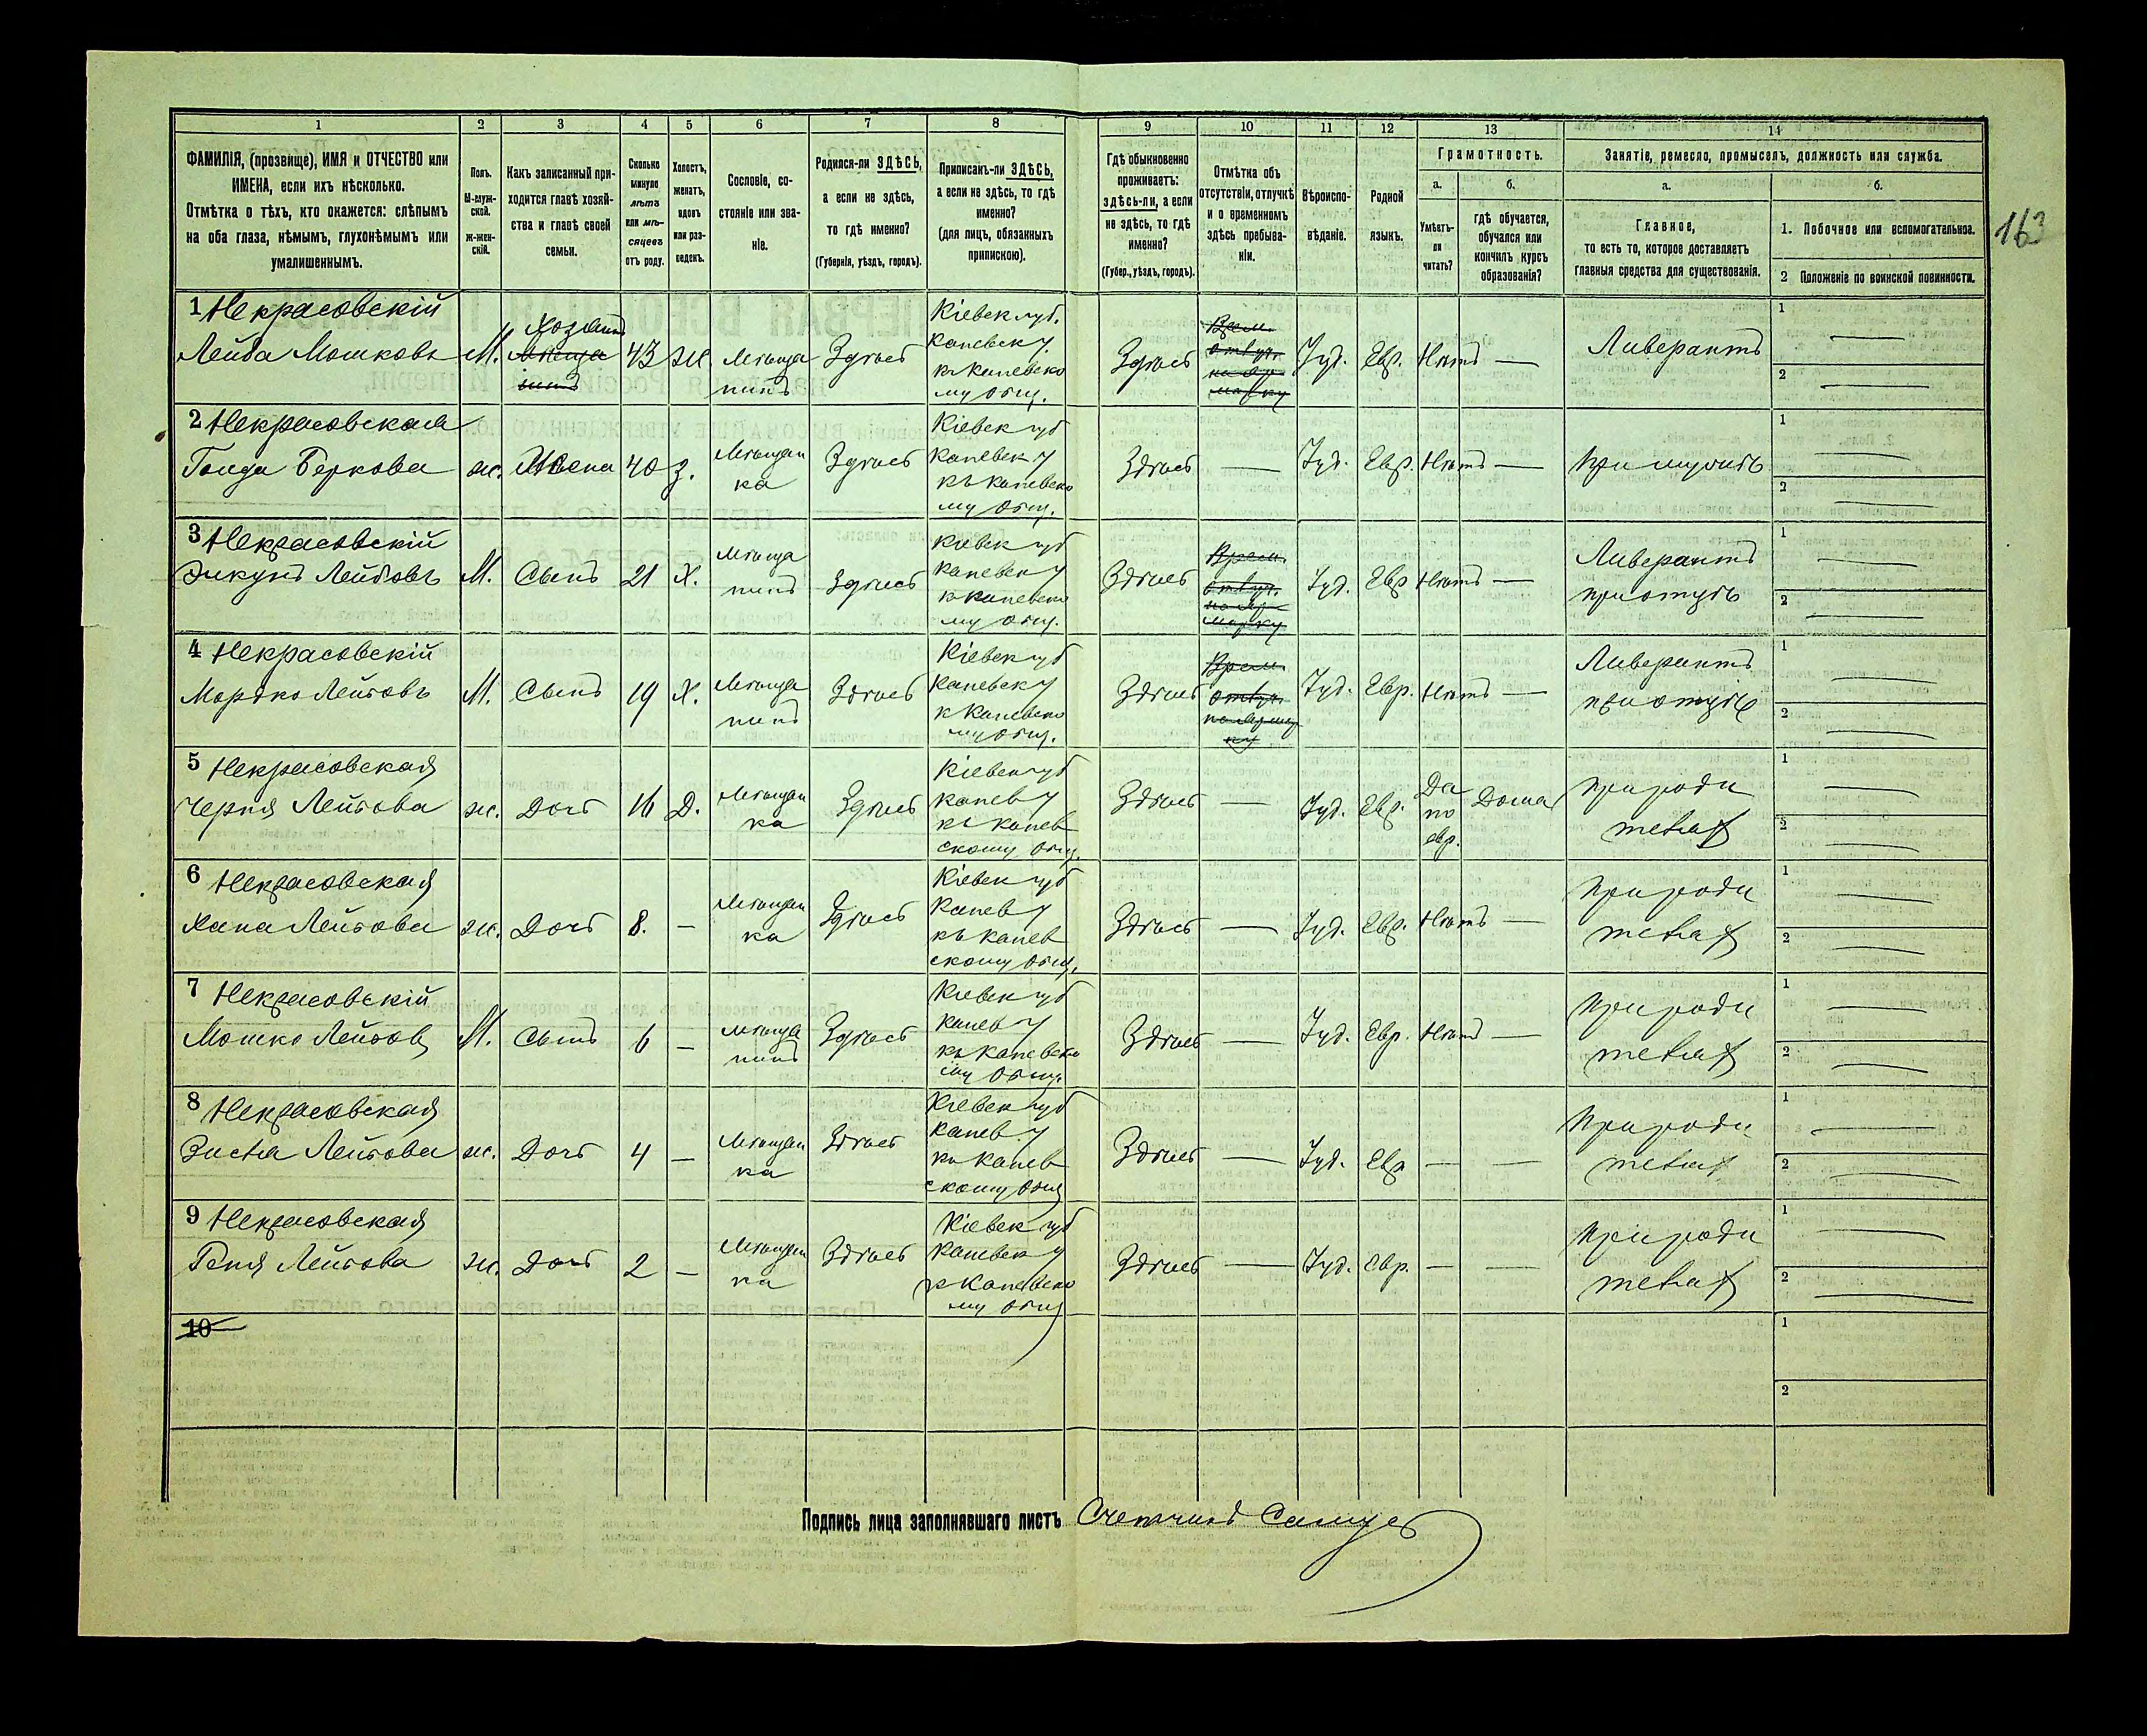 1 2 3 4 5 6 7 8 9 10 11 12 13 14
ФАМИЛІЯ, (прозвище), ИМЯ и ОТЧЕСТВО или
ИМЕНА, если ихъ нѣсколько.
Отмѣтка о тѣхъ, кто окажется: слѣпымъ
на оба глаза, нѣмымъ, глухонѣмымъ или
умалишеннымъ.
Полъ.
М-муж-
ской.
ж-жен-
скій.
Какъ записанный при-
ходится главѣ хозяй-
ства и главѣ своей
семьи.
Сколько
минуло
лѣтъ
или мѣ-
сяцевъ
отъ роду.
Холостъ,
женатъ,
вдовъ
или раз-
веденъ.
Сословіе, со-
стояніе или зва-
ніе.
Родился-ли ЗДѢСЬ,
а если не здѣсь,
то гдѣ именно?
(Губернія, уѣздъ, городъ).
Приписанъ-ли ЗДѢСЬ,
а если не здѣсь, то гдѣ
именно?
(для лицъ, обязанныхъ
припискою).
Гдѣ обыкновенно
проживаетъ:
здѣсь-ли, а если
не здѣсь, то гдѣ
именно?
(Губер., уѣздъ, городъ).
Отмѣтка объ
отсутствіи, отлучкѣ
и о временномъ
здѣсь пребыва-
ніи.
Вѣроиспо-
вѣданіе.
Родной
языкъ.
Грамотность.
а.
Умѣетъ-
ли
читать?
б.
гдѣ обучается,
обучался или
кончилъ курсъ
образованія?
Занятіе, ремесло, промыселъ, должность или служба.
а.
Главное,
то есть то, которое доставляетъ
главныя средства для существованія.
б.
1. Побочное или вспомогательное.
2 Положеніе по воинской повинности.
163
1 Некрасовскій
Лейба Мошковъ М. Хозяинъ 43 Ж. Мѣща
нинъ Здѣсь Кіевск губ.
Каневск у.
къ Каневско
му общ. Здѣсь Врем.
отлуч.
на яр
марку Іуд. Евр. Нѣтъ — Ливерантъ
1 —
2 —
2 Некрасовская
Беркова ж. Жена 40 З. Мѣщан
ка Здѣсь Кіевск губ
Каневск у
къ Каневско
му общ. Здѣсь — Іуд. Евр. Нѣтъ — При мужѣ
1 —
2 —
3 Некрасовскій
Лейбовъ М. Сынъ 21 Х. Мѣща
нинъ Здѣсь Кіевск губ
Каневск у
к Каневско
му общ. Здѣсь Врем.
отлуч.
на яр
марку Іуд. Евр Нѣтъ — Ливерантъ
при отцѣ
1 —
2 —
4 Некрасовскій
Мордко Лейбовъ М. Сынъ 19 Х. Мѣща
нинъ Здѣсь Кіевск губ
Каневск у
к Каневско
му общ. Здѣсь Врем.
отлуч.
на ярмар
ку Іуд. Евр. Нѣтъ — Ливерантъ
при отцѣ
1 —
2 —
5 Некрасовская
Черня Лейбова ж. Дочь 16 Д. Мѣщан
ка Здѣсь Кіевск губ
Канев у
къ Канев
скому общ. Здѣсь — Іуд. Евр. Да
по
евр. Дома При роди
телях
1 —
2 —
6 Некрасовская
Хана Лейбова ж. Дочь 8. — Мѣщан
ка Здѣсь Кіевск губ
Канев у
къ Канев
скому общ. Здѣсь — Іуд. Евр. Нѣтъ — При роди
телях
1 —
2 —
7 Некрасовскій
Мошко Лейбов М. Сынъ 6 — Мѣща
нинъ Здѣсь Кіевск губ
Канев у
къ Каневско
му общ. Здѣсь — Іуд. Евр. Нѣтъ — При роди
телях
1 —
2 —
8 Некрасовская
Зисля Лейбова ж. Дочь 4 — Мѣщан
ка Здѣсь Кіевск губ
Канев. у
къ Канев
скому общ Здѣсь — Іуд. Евр — — При роди
телях
1 —
2 —
9 Некрасовская
Геня Лейбова ж. Дочь 2 — Мѣщан
ка Здѣсь Кіевск губ
Каневск у
к Каневско
му общ Здѣсь — Іуд. Евр. — — При роди
телях
1 —
2 —
10
1
2
Подпись лица заполнявшаго листъ Счетчикъ